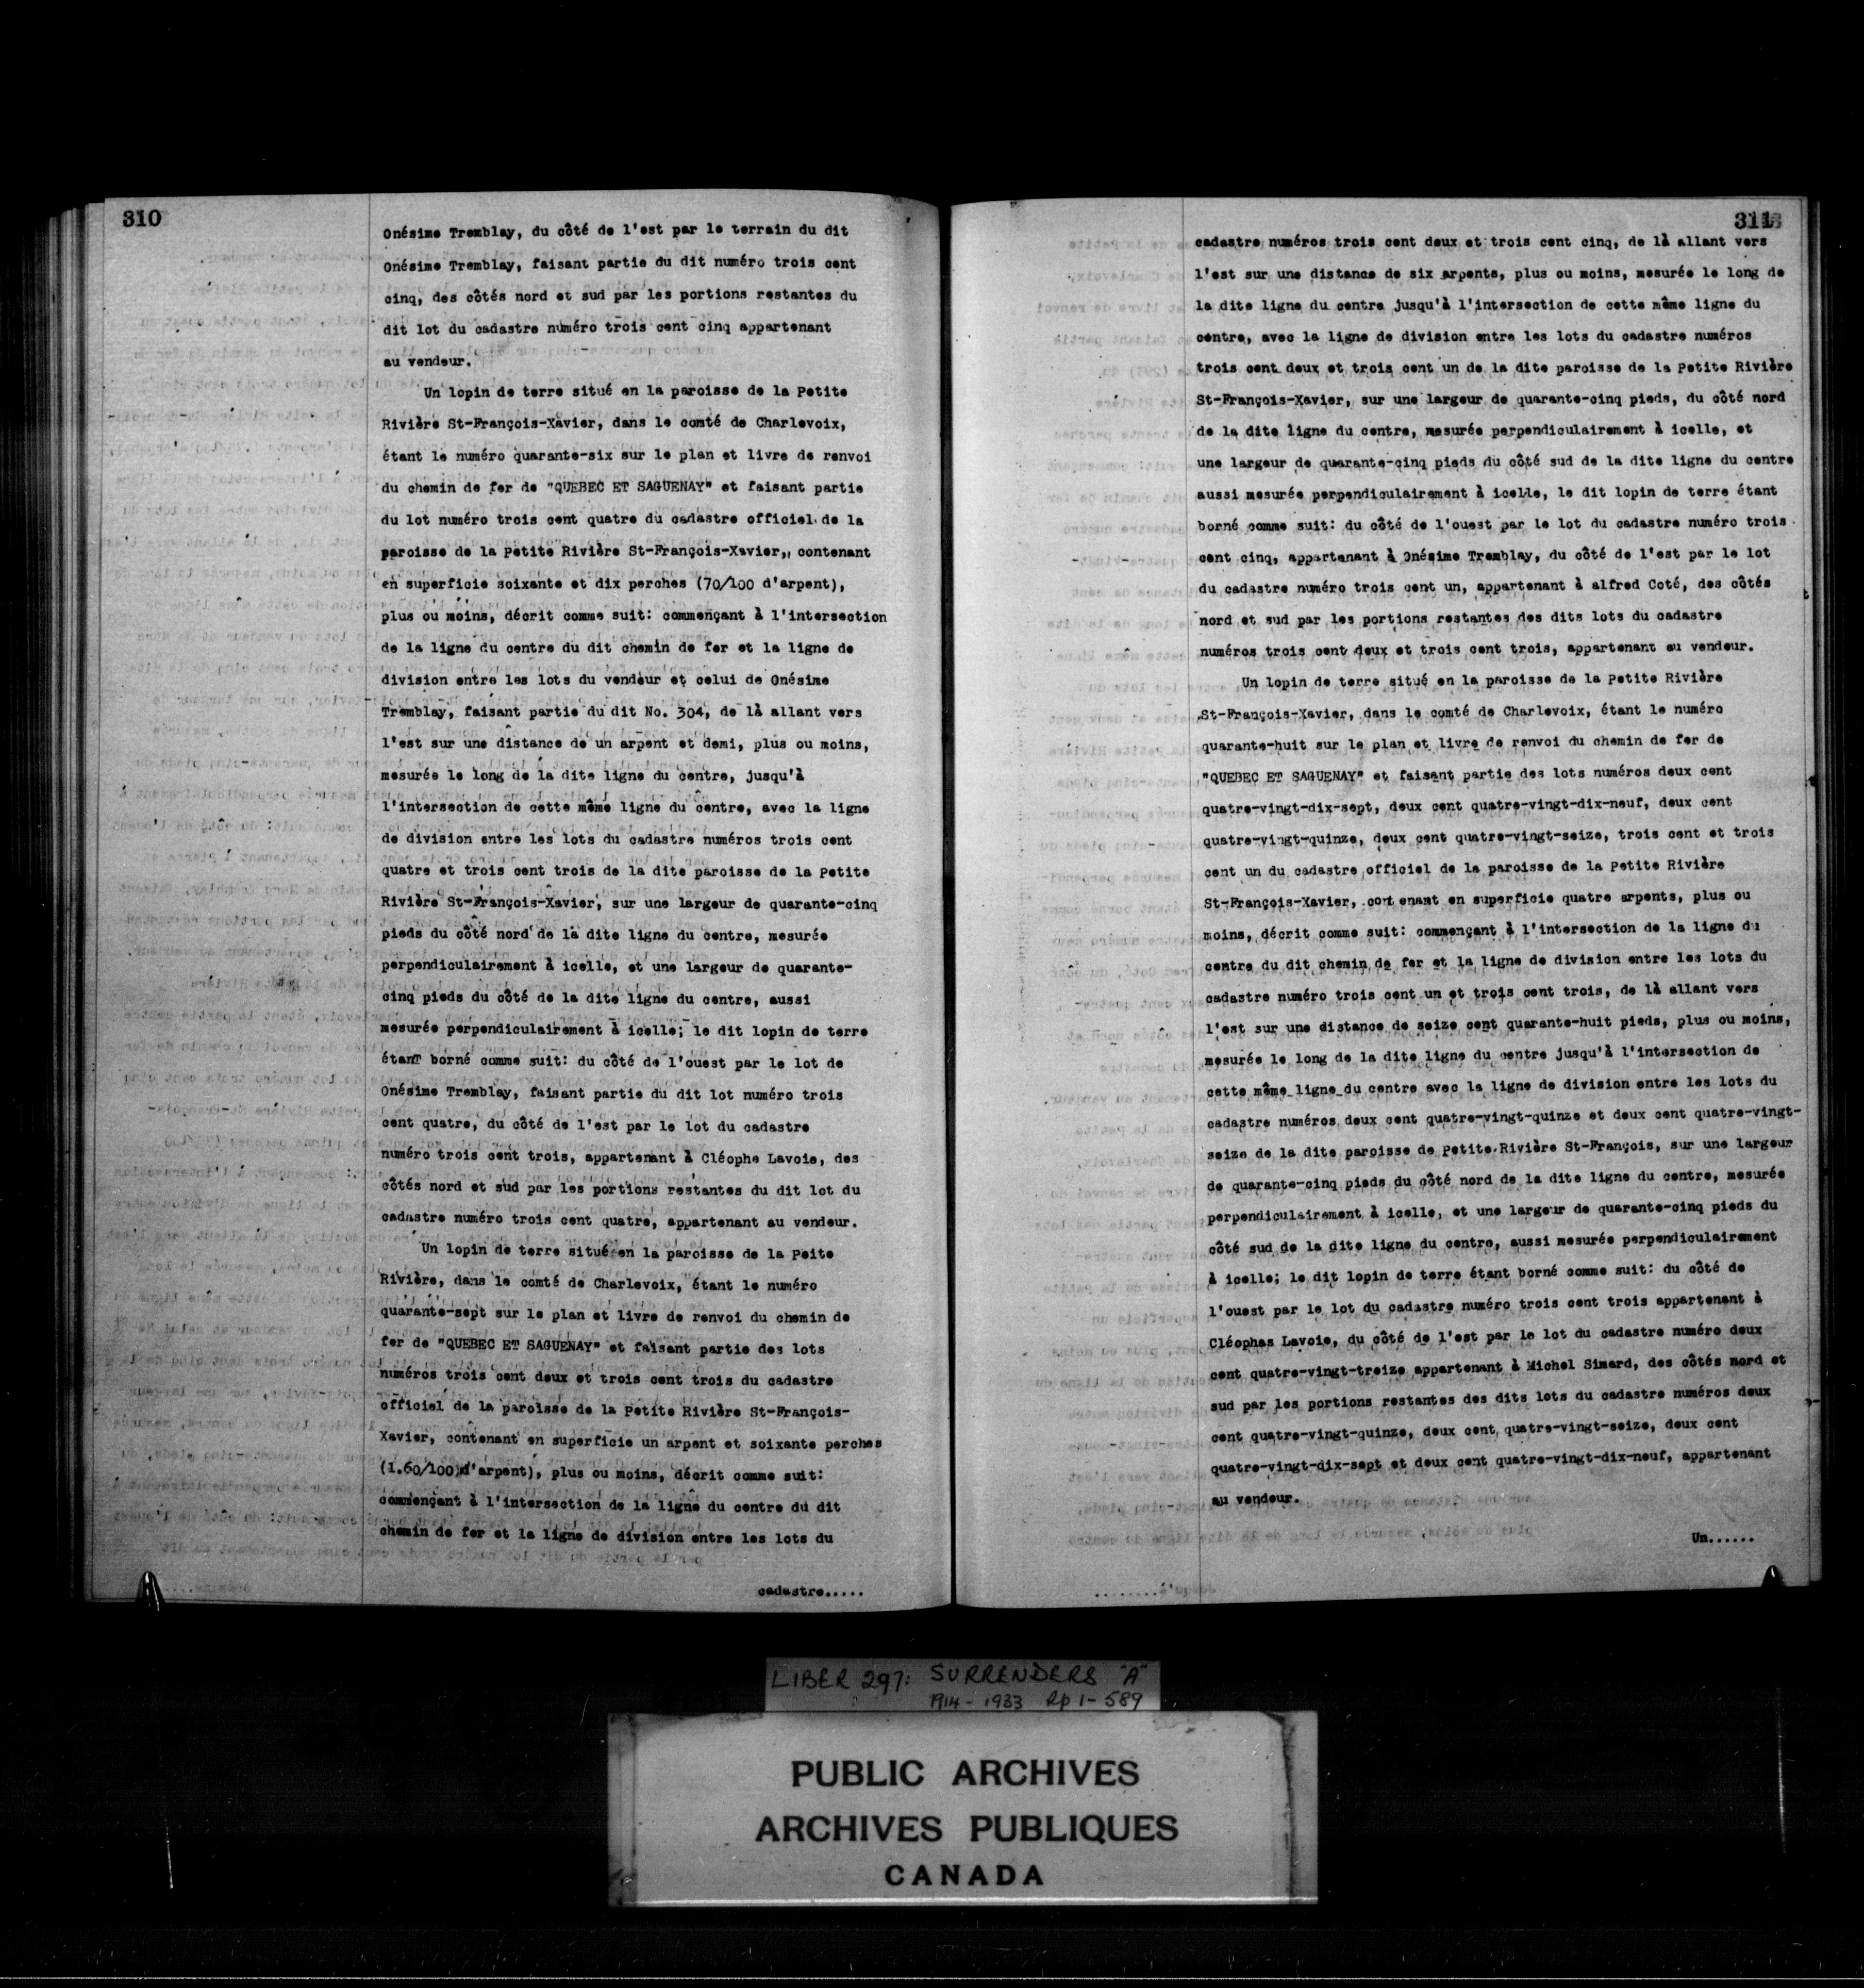 310
Onésime Tremblay, du côté de l'est par le terrain du dit
Onésime Tremblay, faisant partie du dit numéro trois cent
cinq, des côtés nord et sud par les portions restantes du
dit lot du cadastre numéro trois cent cinq appartenant
au vendeur.
Un lopin de terre situé en la paroisse de la Petite
Rivière St-François-Xavier, dans le comté de Charlevoix,
étant le numéro quarante-six sur le plan et livre de renvoi
du chemin de fer de "QUEBEC ET SAGUENAY" et faisant partie
du lot numéro trois cent quatre du cadastre officiel de la
paroisse de la Petite Rivière St-François-Xavier,, contenant
en superficie soixante et dix perches (70/100 d'arpent),
plus ou moins, décrit comme suit: commençant à l'intersection
de la ligne du centre du dit chemin de fer et la ligne de
division entre les lots du vendeur et celui de Onésime
Tremblay, faisant partie du dit No. 304, de là allant vers
l'est sur une distance de un arpent et demi, plus ou moins,
mesurée le long de la dite ligne du centre, jusqu'à
l'intersection de cette même ligne du centre, avec la ligne
de division entre les lots du cadastre numéros trois cent
quatre et trois cent trois de la dite paroisse de la Petite
Rivière St-François-Xavier, sur une largeur de quarante-cinq
pieds du côté nord de la dite ligne du centre, mesurée
perpendiculairement à icelle, et une largeur de quarante-
cinq pieds du côté de la dite ligne du centre, aussi
mesurée perpendiculairement à icelle; le dit lopin de terre
étant borné comme suit: du côté de l'ouest par le lot de
Onésime Tremblay, faisant partie du dit lot numéro trois
cent quatre, du côté de l'est par le lot du cadastre
numéro trois cent trois, appartenant à Cléophe Lavoie, des
côtés nord et sud par les portions restantes du dit lot du
cadastre numéro trois cent quatre, appartenant au vendeur.
Un lopin de terre situé en la paroisse de la Peite
Rivière, dans le comté de Charlevoix, étant le numéro
quarante-sept sur le plan et livre de renvoi du chemin de
fer de "QUEBEC ET SAGUENAY" et faisant partie des lots
numéros trois cent deux et trois cent trois du cadastre
officiel de la paroisse de la Petite Rivière St-François-
Xavier, contenant en superficie un arpent et soixante perches
(1.60/100 d'arpent), plus ou moins, décrit comme suit:
commençant à l'intersection de la ligne du centre du dit
chemin de fer et la ligne de division entre les lots du
cadastre.....
311
cadastre numéros trois cent deux et trois cent cinq, de là allant vers
l'est sur une distance de six arpents, plus ou moins, mesurée le long de
la dite ligne du centre jusqu'à l'intersection de cette même ligne du
centre, avec la ligne de division entre les lots du cadastre numéros
trois cent deux et trois cent un de la dite paroisse de la Petite Rivière
St-François-Xavier, sur une largeur de quarante-cinq pieds, du côté nord
de la dite ligne du centre, mesurée perpendiculairement à icelle, et
une largeur de quarante-cinq pieds du côté sud de la dite ligne du centre
aussi mesurée perpendiculairement à icelle, le dit lopin de terre étant
borné comme suit: du côté de l'ouest par le lot du cadastre numéro trois
cent cinq, appartenant à Onésime Tremblay, du côté de l'est par le lot
du cadastre numéro trois cent un, appartenant à alfred Coté, des côtés
nord et sud par les portions restantes des dits lots du cadastre
numéros trois cent deux et trois cent trois, appartenant au vendeur.
Un lopin de terre situé en la paroisse de la Petite Rivière
St-François-Xavier, dans le comté de Charlevoix, étant le numéro
quarante-huit sur le plan et livre de renvoi du chemin de fer de
"QUEBEC ET SAGUENAY" et faisant partie des lots numéros deux cent
quatre-vingt-dix-sept, deux cent quatre-vingt-dix-neuf, deux cent
quatre-vingt-quinze, deux cent quatre-vingt-seize, trois cent et trois
cent un du cadastre officiel de la paroisse de la Petite Rivière
St-François-Xavier, contenant en superficie quatre arpents, plus ou
moins, décrit comme suit: commençant à l'intersection de la ligne du
centre du dit chemin de fer et la ligne de division entre les lots du
cadastre numéro trois cent un et trois cent trois, de là allant vers
l'est sur une distance de seize cent quarante-huit pieds, plus ou moins,
mesurée le long de la dite ligne du centre jusqu'à l'intersection de
cette même ligne du centre avec la ligne de division entre les lots du
cadastre numéros deux cent quatre-vingt-quinze et deux cent quatre-vingt-
seize de la dite paroisse de Petite Rivière St-François, sur une largeur
de quarante-cinq pieds du côté nord de la dite ligne du centre, mesurée
perpendiculairement à icelle, et une largeur de quarante-cinq pieds du
côté sud de la dite ligne du centre, aussi mesurée perpendiculairement
à icelle; le dit lopin de terre étant borné comme suit: du côté de
l'ouest par le lot du cadastre numéro trois cent trois appartenant à
Cléophas Lavoie, du côté de l'est par le lot du cadastre numéro deux
cent quatre-vingt-treize appartenant à Michel Simard, des côtés nord et
sud par les portions restantes des dits lots du cadastre numéros deux
cent quatre-vingt-quinze, deux cent quatre-vingt-seize, deux cent
quatre-vingt-dix-sept et deux cent quatre-vingt-dix-neuf, appartenant
au vendeur.
Un......
LIBER 297: SURRENDERS "A"
1914-1933 Rp 1-589
PUBLIC ARCHIVES
ARCHIVES PUBLIQUES
CANADA